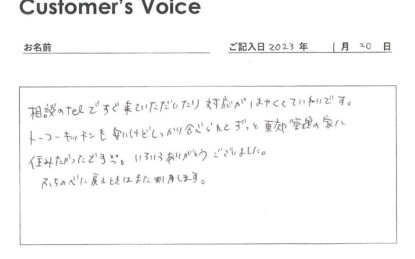 Customer's Voice
お名前
ご記入日 2023 年 1 月 20 日
相談のtelですぐ来ていただいたり 対応がはやくていいです。
トーコーキッチンも 安いけどしっかり食べられて ずっと 東郊管理の家に
住みたかったですが。いろいろありがとうございました。
ふちのべに戻るときはまた利用します。